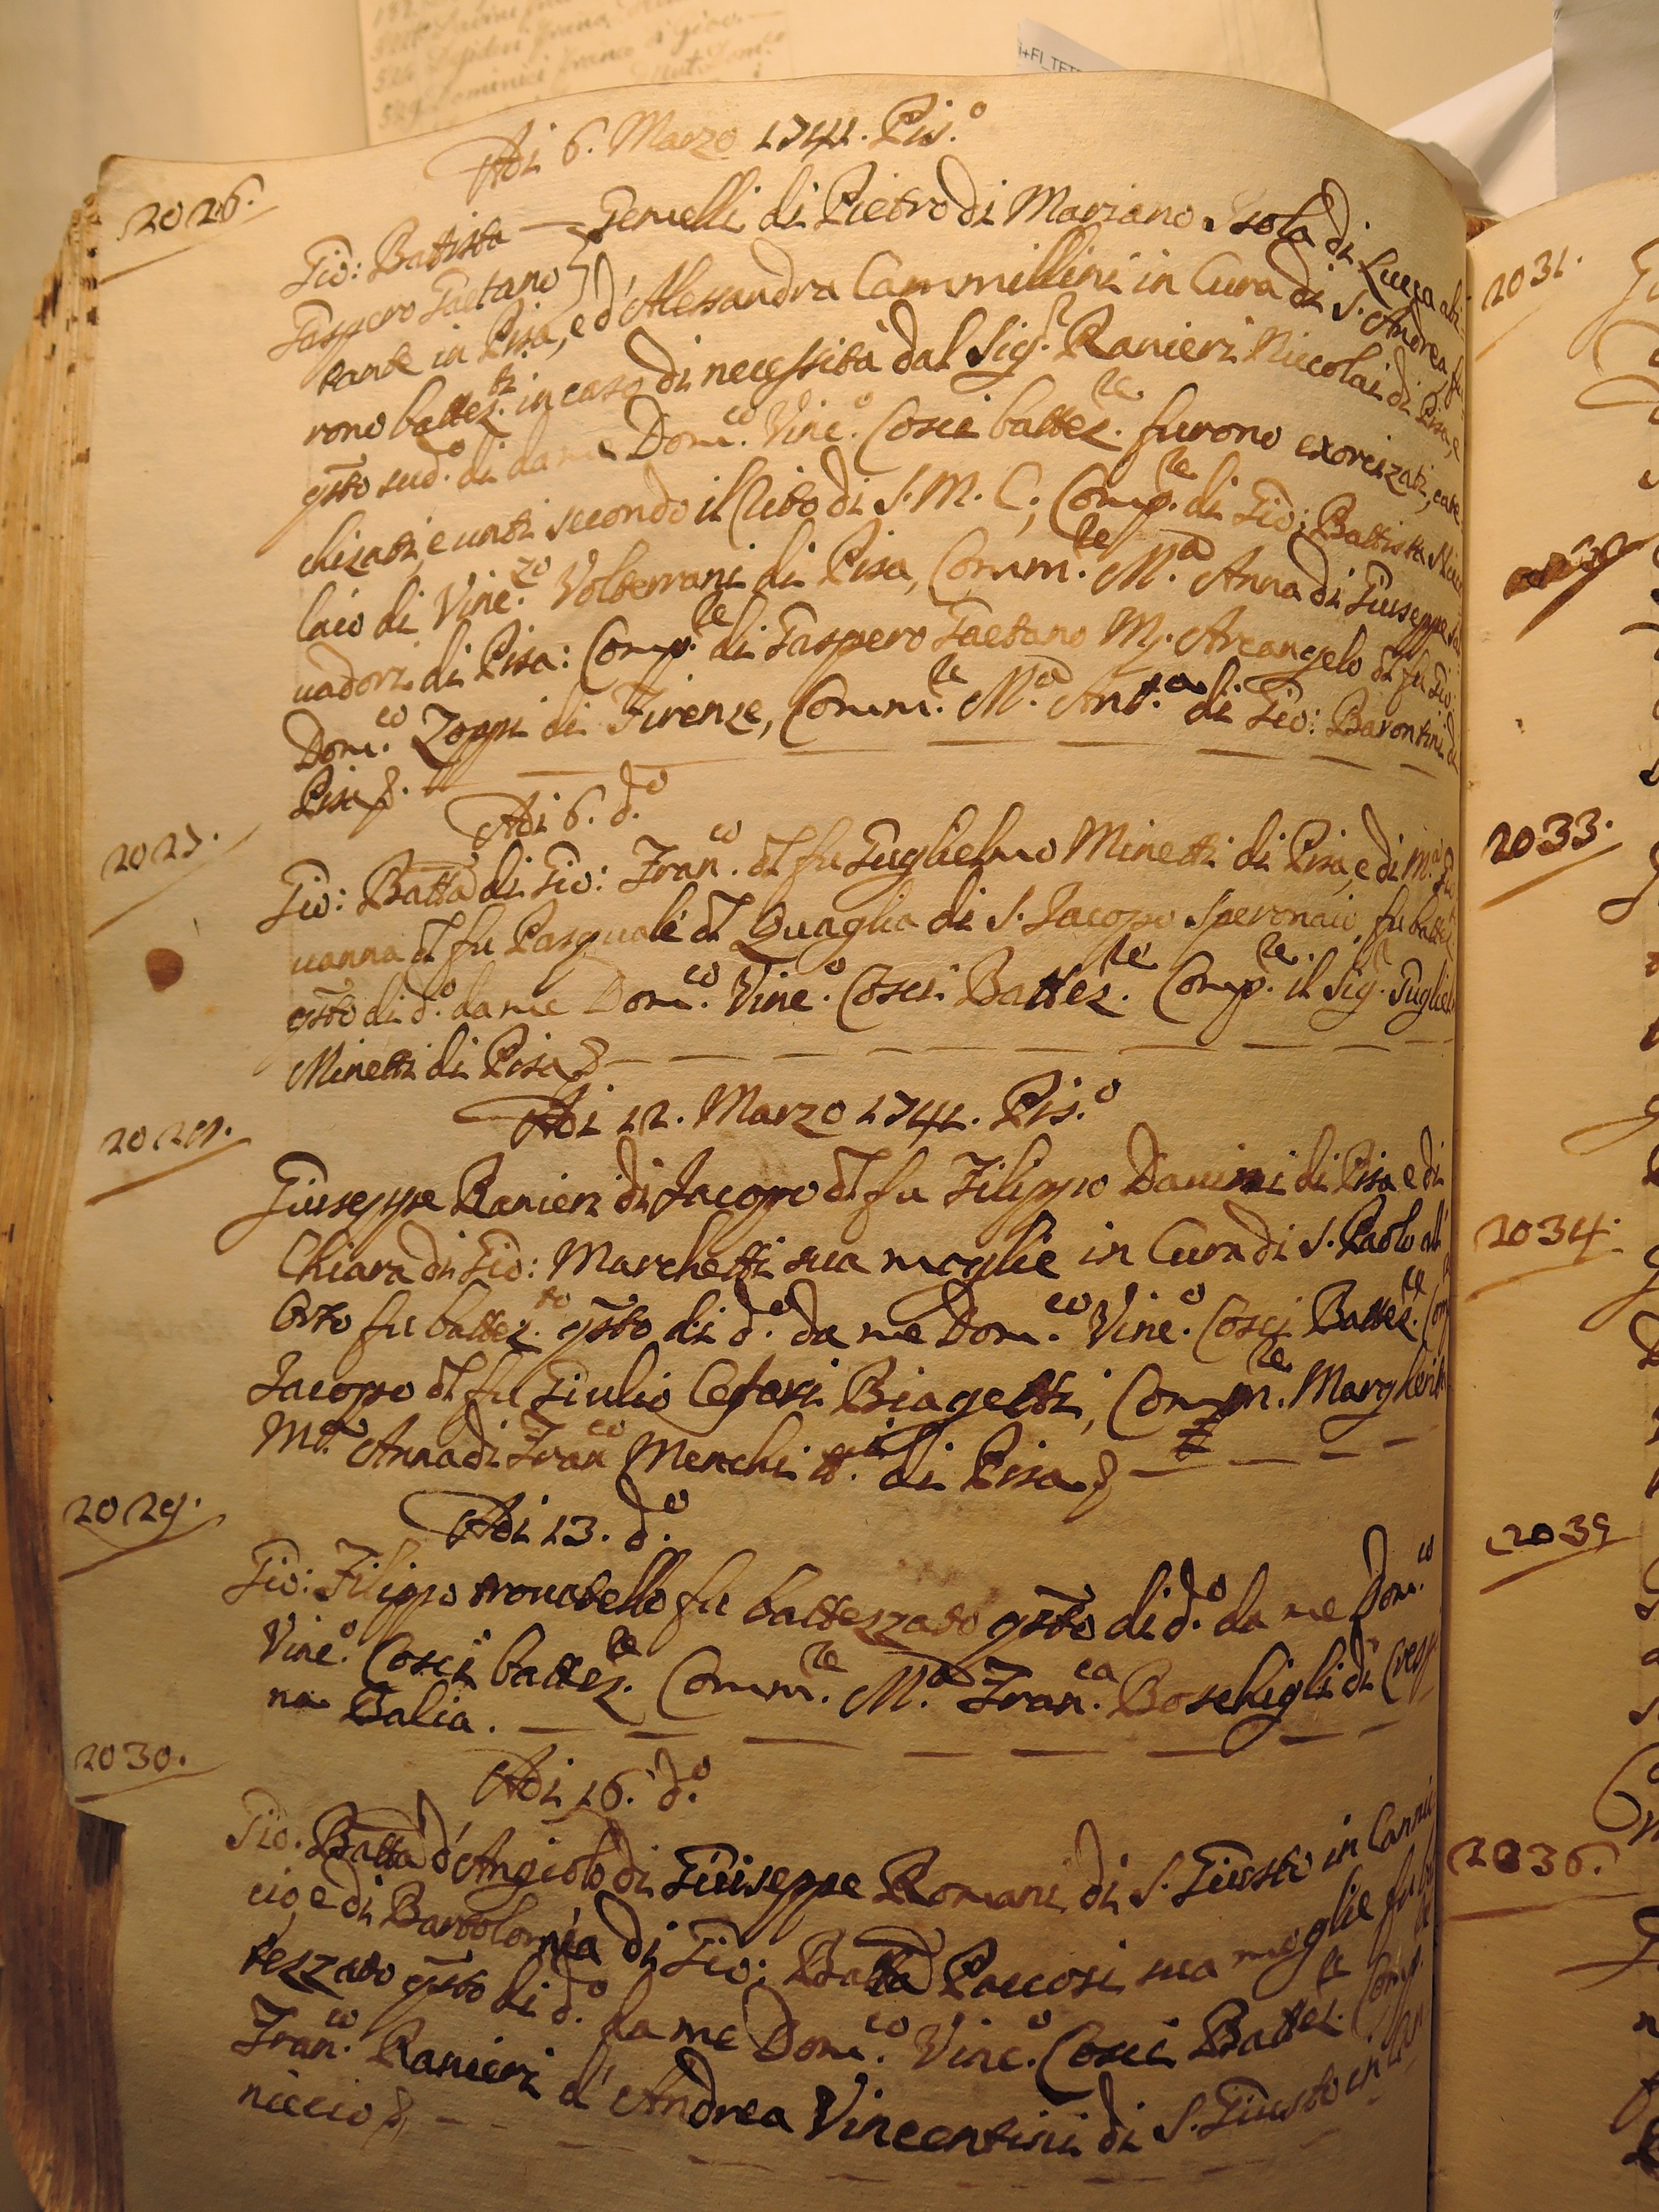 Adi 6. Marzo 1741. Pis.º
2026.
Gio: Batista — Gemelli di Pietro di Mariano Isola di Lucca abi-
Gaspero Gaetano
tante in Pisa, e d'Alessandra Cammillini in Cura di S. Andrea fu-
rono battez.ti in caso di necessità dal Sig.r Ranieri Niccolai di Pisa, e
qsto sud.º dì da me Dom.co Vinc.º Cosci battez.re furono exorcizati, cate
chizati, e unti secondo il Rito di S. M. C; Comp.re di Gio: Battista
laio di Vinc.zo Volterrani di Pisa, Comm.re M.a Anna di Giuseppe
uadori di Pisa: Comp.re di Gaspero Gaetano M. Arcangelo dl fu Gio:
Dom.co Zoppi di Firenze, Comm.re M.a Ant.a di Gio: Barontini di
Pisa
Adi 6. d.º
2027.
Gio: Batta di Gio: Fran.co dl fu Guglielmo Minetti di Pisa, e di M.a Gio
uanna dl fu Pasquale dl Quaglia di S. Jacopo Speronaio, fu battez.
qsto dì d.º da me Dom.co Vinc.º Cosci Battez.re Comp.re il Sig.r Gugliel
Minetti di Pisa
Adi 12. Marzo 1741. Pis.º
2028.
Giuseppe Ranieri di Jacopo dl fu Filippo Danini di Pisa e di
Chiara di Gio: Marchetti sua moglie in Cura di S. Paolo all'
Orto fu battez.to qsto dì d.º da me Dom.co Vinc.º Cosci Battez.re Com
Jacopo dl fu Giulio Cesari Biagetti, Comm.re Margherita
Anna di Fran.co Menchi di Pisa
Adi 13. d.º
2029.
Gio: Filippo trouatello fu battezzato qsto dì d.º da me Dom.co
Vinc.º Cosci battez.re Comm.re M.a Fran.ca Boschigli di Cresp
na Balia.
Adi 16. d.º
2030.
Gio. Batta d'Angiolo di Giuiseppe Romani di S. Giusto in Cannic
cio, e di Bartolomea di Gio: Batta Paccosi sua moglie fu bat
tezzato qsto dì d.º da me Dom.co Vinc.º Cosci Battez.re Comp.
Fran.co Ranieri d'Andrea Vincentini di S. Giusto in Can
niccio
2031.
2033.
2034.
2035
2036.